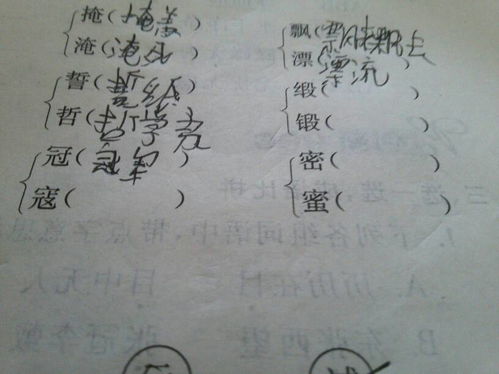 掩(掩盖) 飘(飘去)
淹(淹没) 漂(漂流)
誓( ) 缎( )
哲(哲学家) 锻( )
冠(冠军) 密( )
寇( ) 蜜( )
三 选一选,比一比
1. 下列各组词语中,带点字意思
A. 历历在目 目中无人
B. 东张西望 张冠李戴